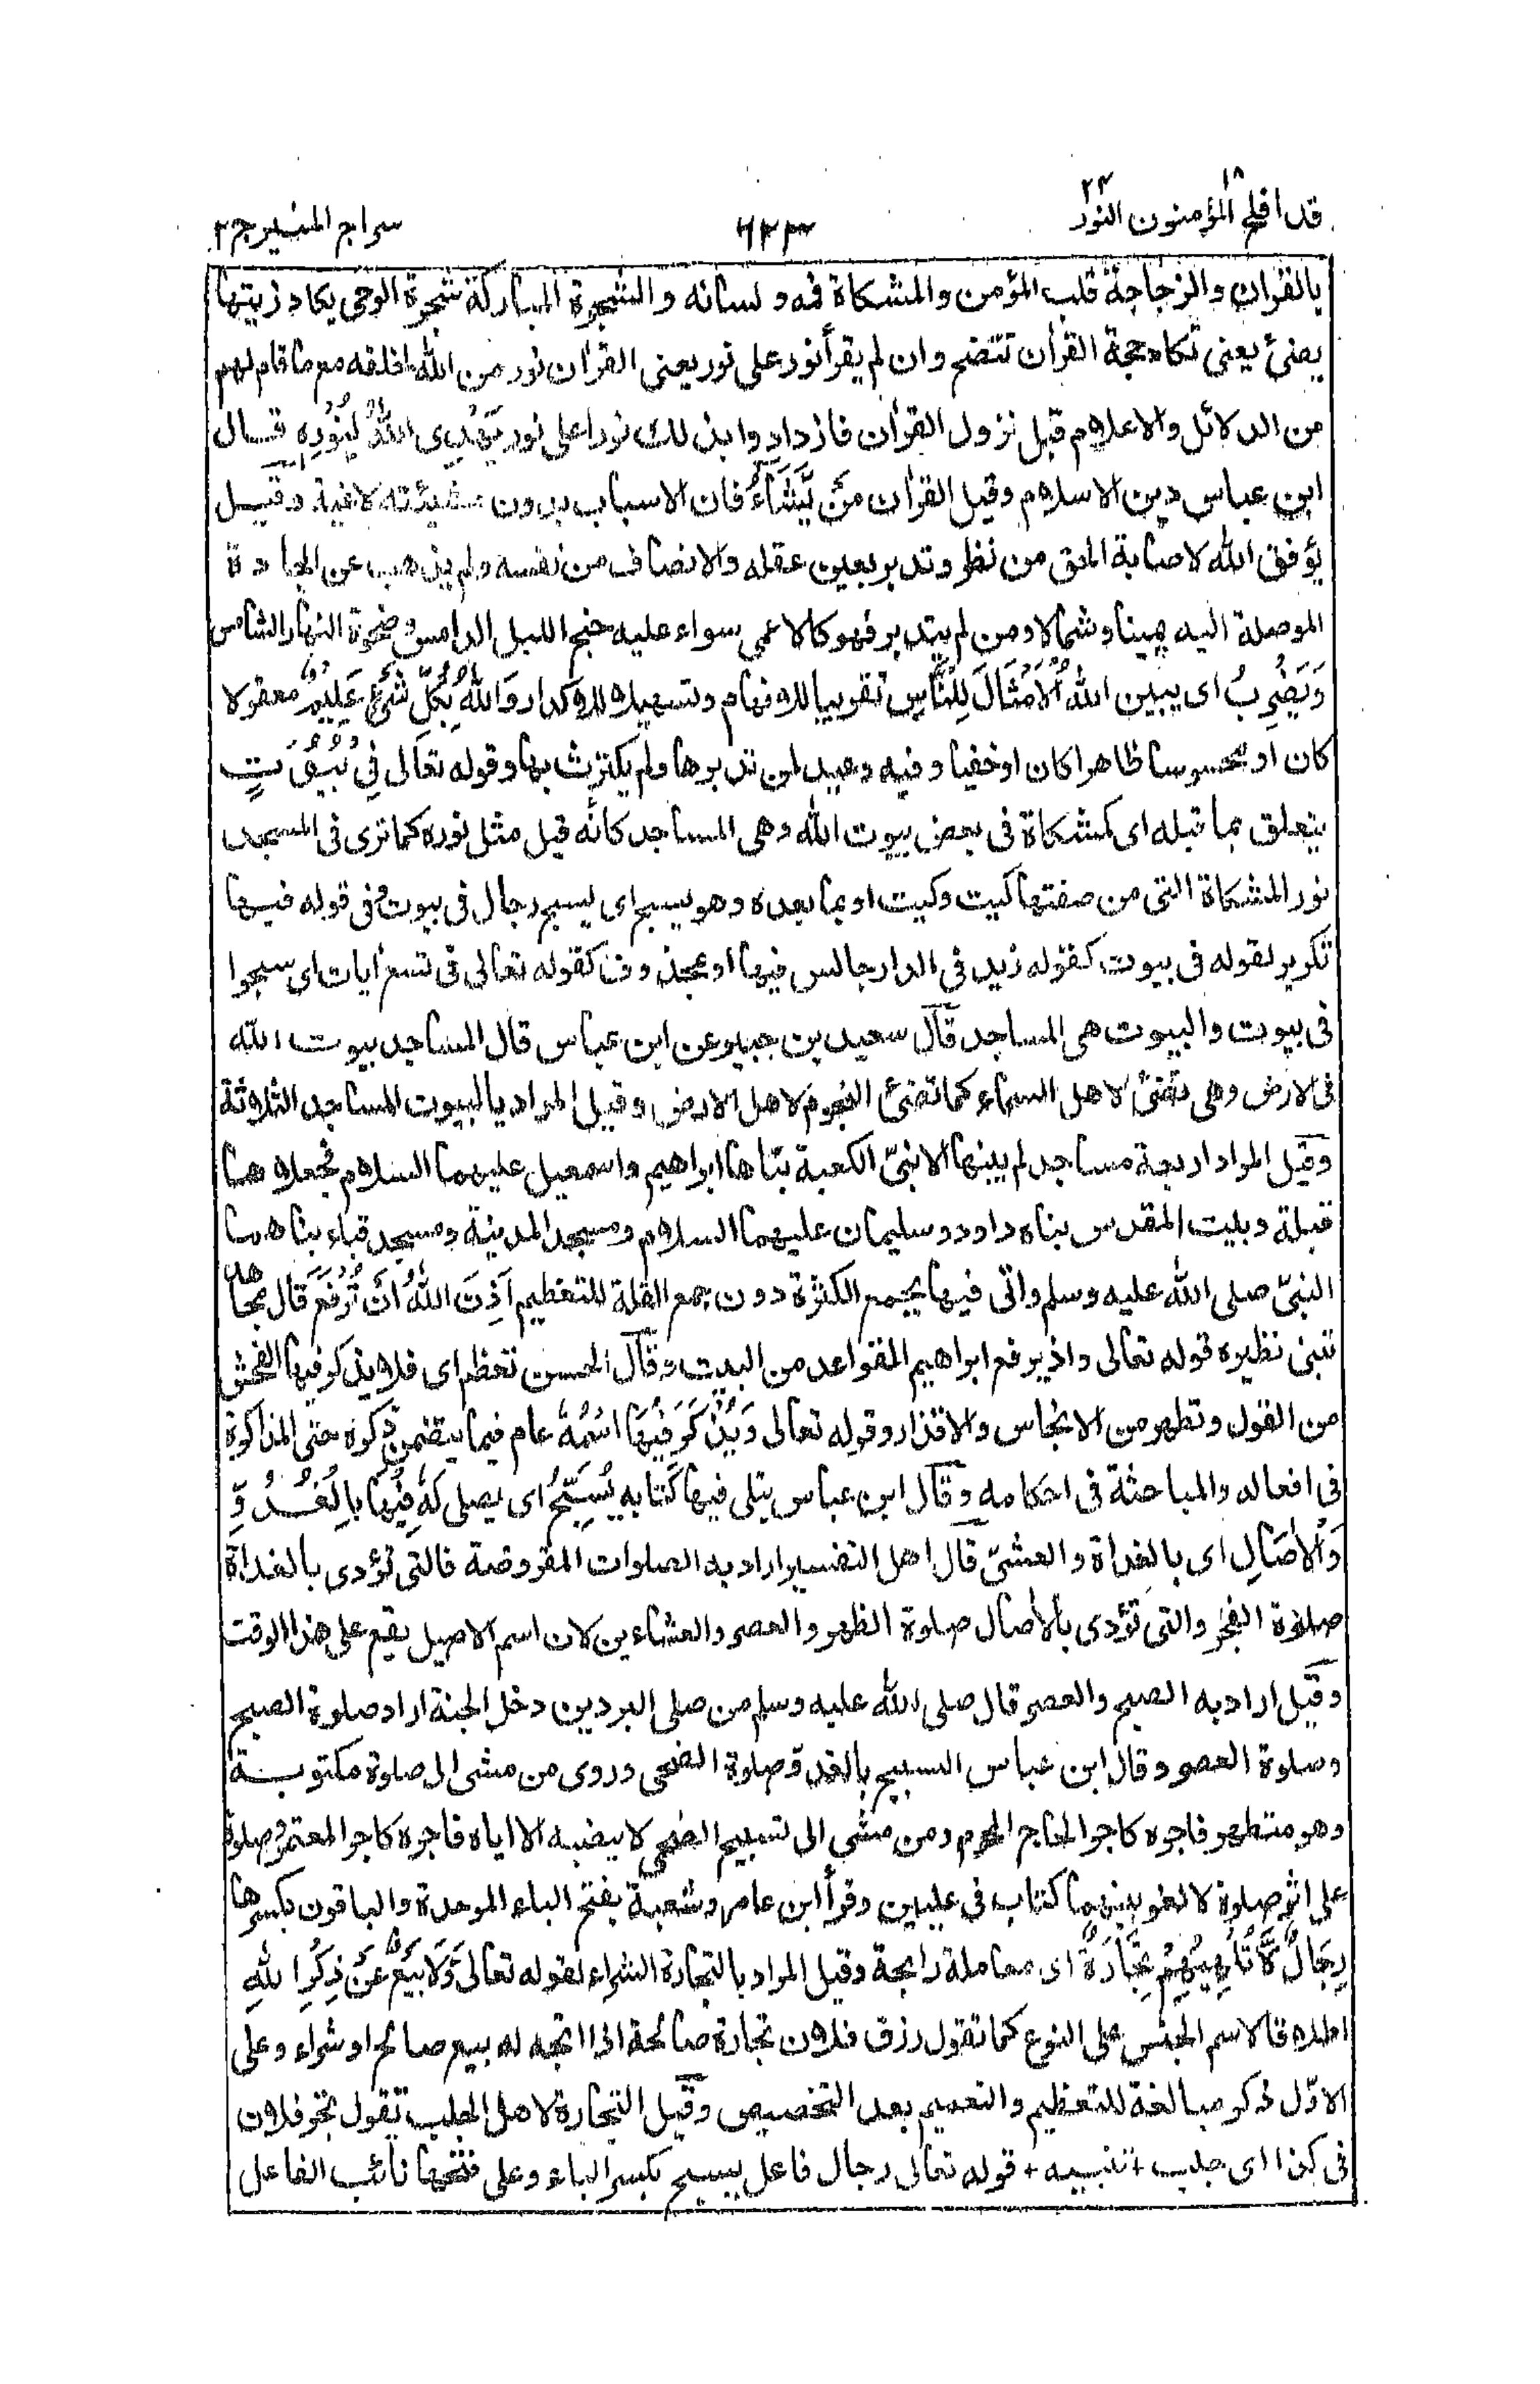 قد افلح المؤمنون ١٨ النور ٢٤
٦٢٣
سراج المنير ج ٢
بالقران والزجاجة قلب المؤمن والمشكاة فمه ولسانه والشجرة المباركة شجرة الوحى يكاد زيتها
يضئ يعنى تكاد حجة القرأن تتضح وان لم يقرأ نور على نور يعنى القرأن نور من الله لخلقه مع ما قام لهم
من الدلائل والاعلام قبل نزول القرأن فازدادوا بذلك نورا على نور يَهْدِى اللهُ لِنُوْرِهٖ قال
ابن عباس دين الاسلام وقيل القرأن مَنْ يَّشَآءُ فان الاسباب بدون مشيئته لاغية وقيل
يوفق الله لاصابة الحق من نظر وتدبر بعين عقله والانصاف من نفسه ولم يذهب عن الجادة
الموصلة اليه يمينا وشمالا ومن لم يتدبر فهو كالاعمى سواء عليه جنح الليل الدامس وضحوة النهار الشامس
وَيَضْرِبُ اى يبين اللهُ الْاَمْثَالَ لِلنَّاسِ تقريبا للافهام وتسهيلا للاكدار وَاللهُ بِكُلِّ شَىْءٍ عَلِيْمٌ معقولا
كان او محسوسا ظاهرا كان او خفيا وفيه وعيد لمن تدبرها ولم يكترث بها وقوله تعالى فِىْ بُيُوْتٍ
يتعلق بما قبله اى كمشكاة فى بعض بيوت الله وهى المساجد كانّه قيل مثل نوره كما ترى فى المسجد
نور المشكاة التى من صفتها كيت وكيت او بما بعده وهو يسبح اى يسبح رجال فى بيوت وفى قوله فيها
تكرير لقوله فى بيوت كقوله زيد فى الدار جالس فيها او بمحذوف كقوله تعالى فى تسع أيات اى سبحوا
فى بيوت والبيوت هى المساجد قال سعيد بن جبير عن ابن عباس قال المساجد بيوت الله
فى الارض وهى تضئ لاهل السماء كما تضئ النجوم لاهل الارض وقيل المراد بالبيوت المساجد الثلاثة
وقيل المراد اربعة مساجد لم يبنها الا نبىّ الكعبة بناها ابراهيم واسمعيل عليهما السلام فجعلاها
قبلة وبيت المقدس بناه داود وسليمان عليهما السلام ومسجد المدينة ومسجد قباء بناهما
النبىّ صلى الله عليه وسلم واتى فيها بجمع الكثرة دون جمع القلة للتعظيم اَذِنَ اللهُ اَنْ تُرْفَعَ قال مجاهد
تبنى نظيره قوله تعالى واذ يرفع ابراهيم القواعد من البيت وقال الحسن تعظم اى فلا يذكر فيها الفحش
من القول وتطهر من الانجاس والاقذار وقوله تعالى وَيُذْكَرَ فِيْهَا اسْمُهٗ عام فيما يتضمن ذكره حتى المذاكرة
فى افعاله والمباحثة فى احكامه وقال ابن عباس يتلى فيها كتابه يُسَبِّحُ اى يصلى لَهٗ فِيْهَا بِالْغُدُوِّ
وَالْاٰصَالِ اى بالغداة والعشىّ قال اهل التفسير اراد به الصلوات المفروضة فالتى تؤدى بالغداة
صلوة الفجر والتى تؤدى بالأصال صلوة الظهر والعصر والعشاءين لان اسم الاصيل يقع على هذا الوقت
وقيل اراد به الصبح والعصر قال صلى الله عليه وسلم من صلى البردين دخل الجنة اراد صلوة الصبح
وصلوة العصر وقال ابن عباس التسبيح بالغدو صلوة الضحى وروى من مشى الى صلوة مكتوبة
وهو متطهر فاجره كاجر الحاج المحرم ومن مشى الى تسبيح الضحى لا ينصبه الا اياه فاجره كاجر المعتمر وصلوة
على اثر صلوة لا لغو بينهما كتاب فى عليين وقرأ ابن عامر وشعبة بفتح الباء الموحدة والباقون بكسرها
رِجَالٌ لَّا تُلْهِيْهِمْ تِجَارَةٌ اى معاملة رابحة وقيل المراد بالتجارة الشراء لقوله تعالى وَّلَا بَيْعٌ عَنْ ذِكْرِ اللهِ
اطلاقا لاسم الجنس على النوع كما تقول رزق فلان تجارة صالحة اذا اتجه له بيع صالح او شراء وعلى
الاوّل ذكر مبالغة للتعظيم والتعميم بعد التخصيص وقيل التجارة لاهل الجلب تقول تجر فلان
فى كذا اى جلب + تنبيه + قوله تعالى رجال فاعل يسبح بكسر الباء وعلى فتحها نائب الفاعل